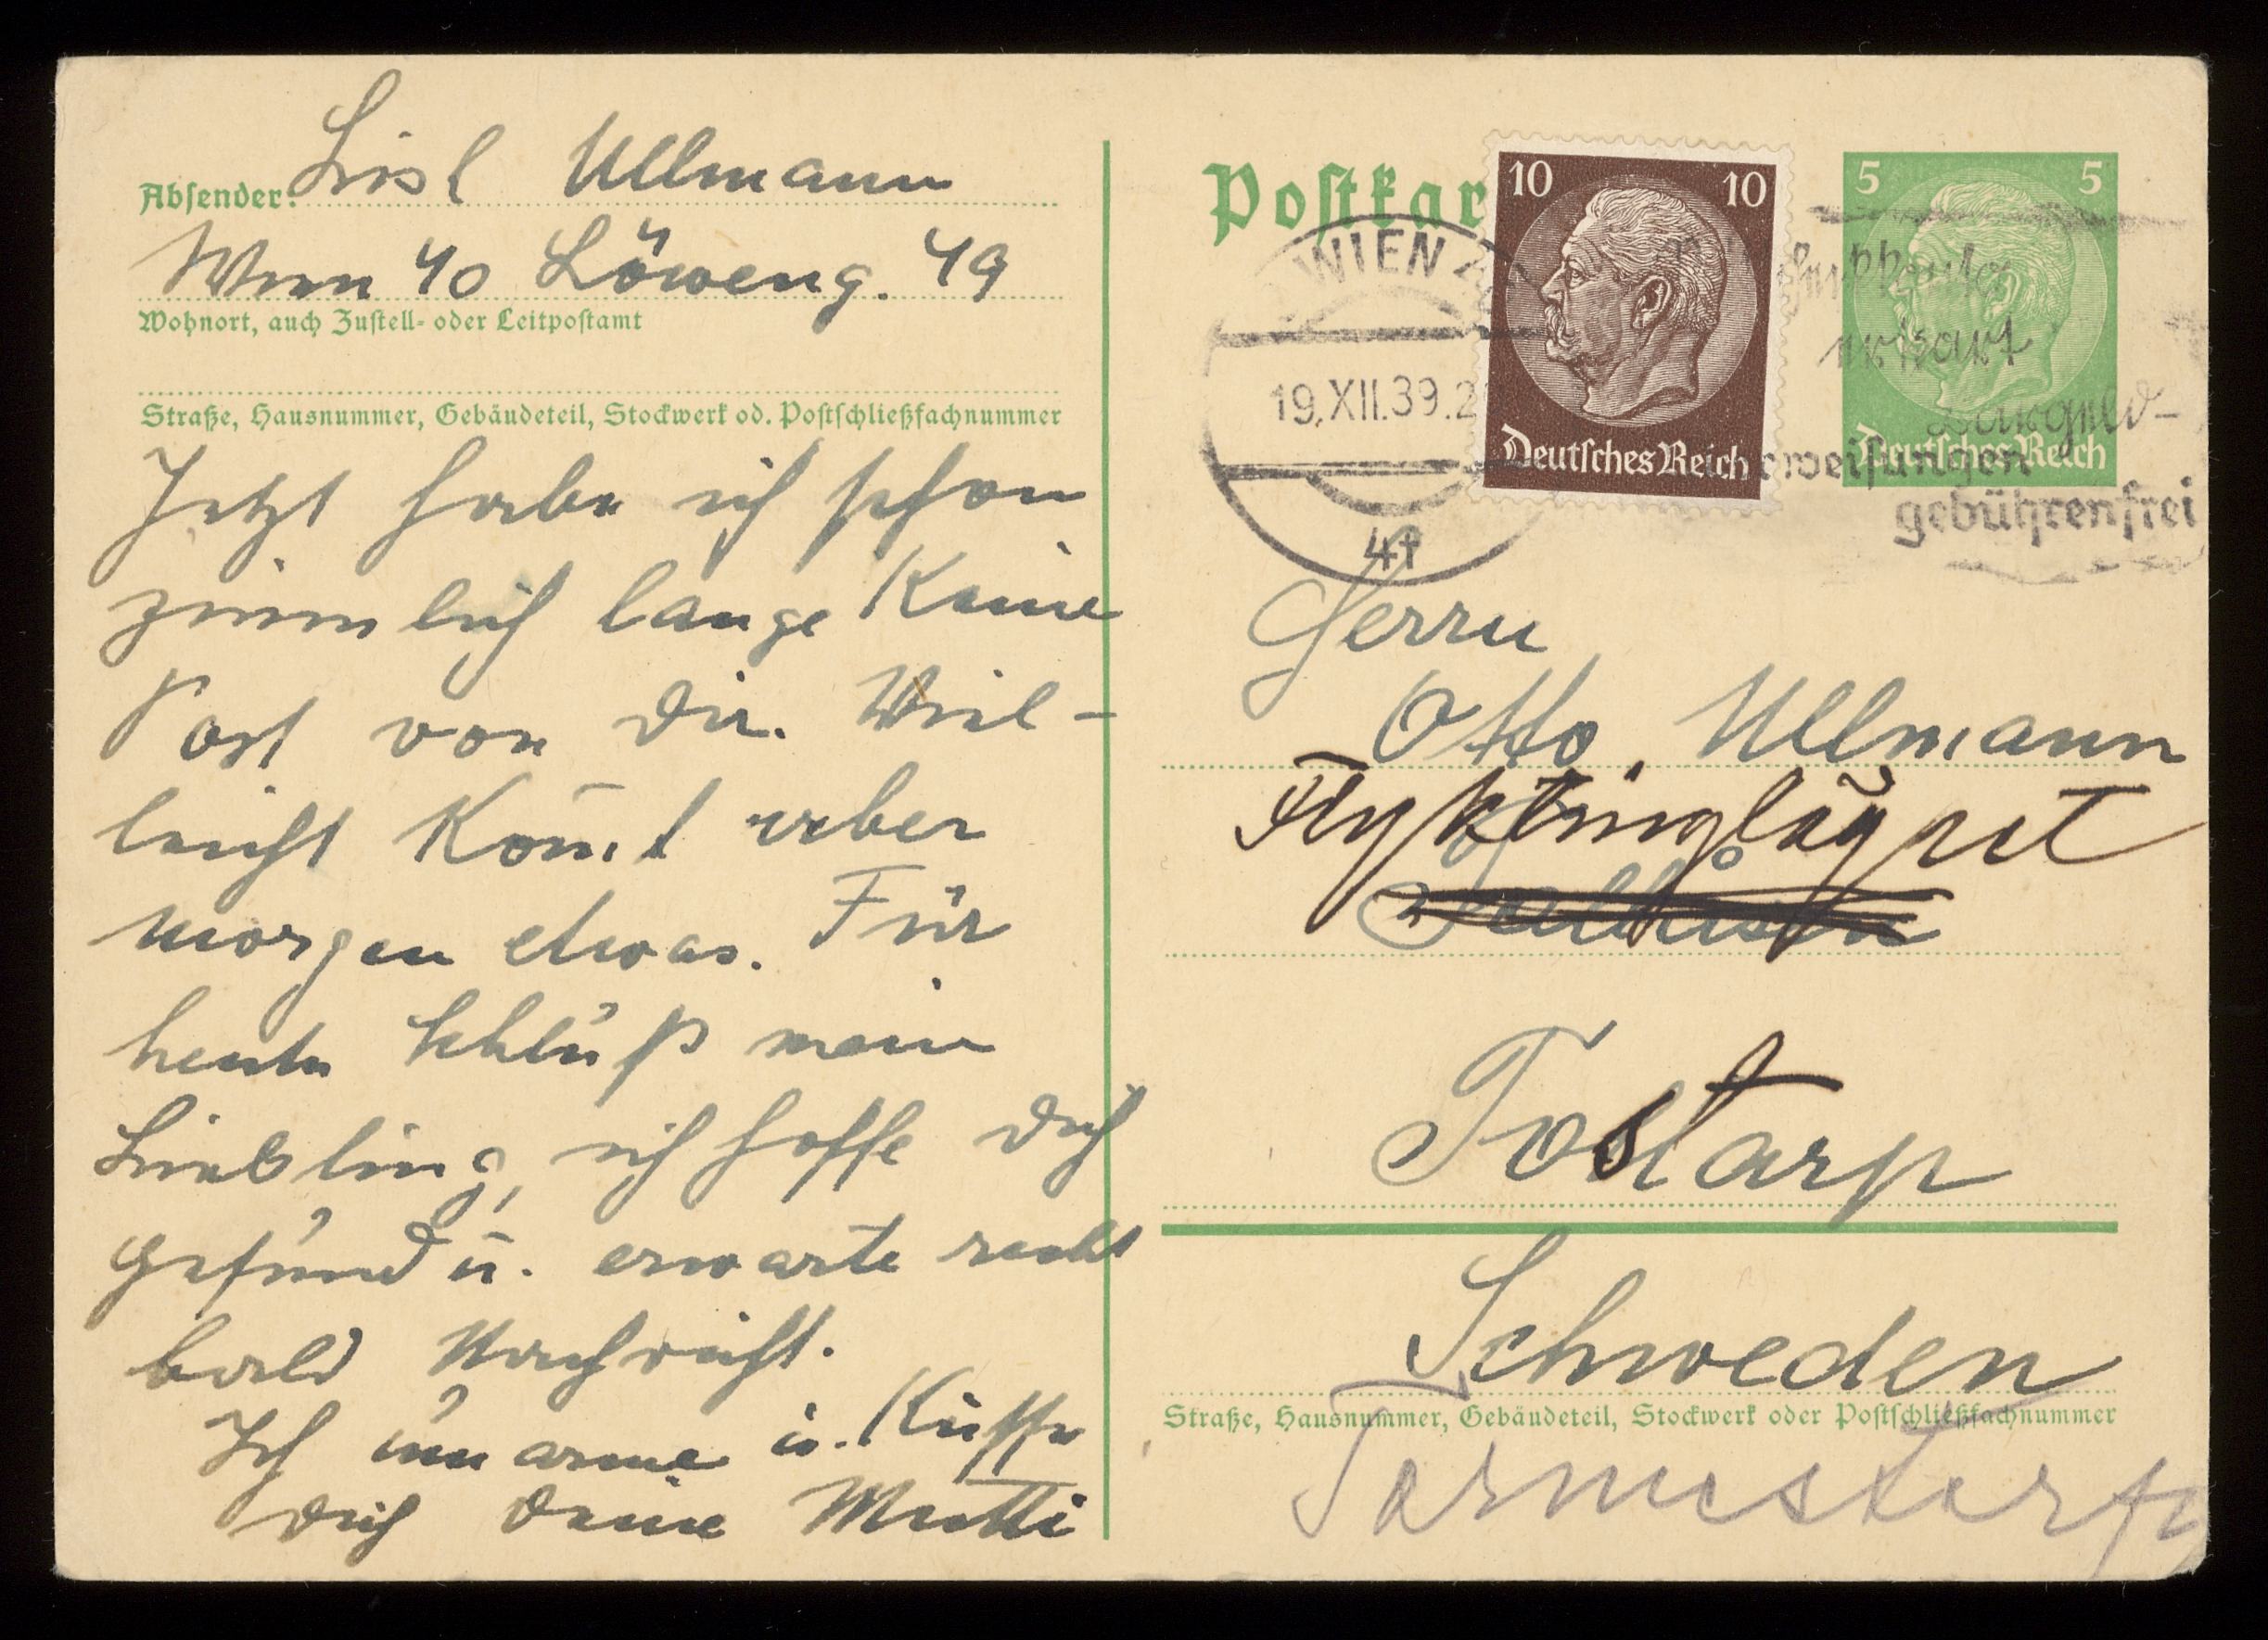 Absender: Lisl Ullmann
Wien 40 Löweng. 49
Wohnort, auch Zustell- oder Leitpostamt
Straße, Hausnummer, Gebäudeteil, Stockwerk od. Postschließfachnummer
Jetzt habe ich schon
ziemlich lange Keine
Post von Dir. Viel-
leicht Kom̄t aber
morgen etwas. Für
heute Schluß mein
Liebling, ich hoffe Dich
gesund u. erwarte recht
bald Nachricht.
Ich umarme u. Küsse
Dich Deine Mutti
Postkar
10 10
Deutsches Reich
5 5
Deutsches Reich
WIEN
19.XII.39.2
4t
weisungen
gebührenfrei
Herrn
Otto Ullmann
Flyktinglägret
Tostarp
Schweden
Straße, Hausnummer, Gebäudeteil, Stockwerk oder Postschließfachnummer